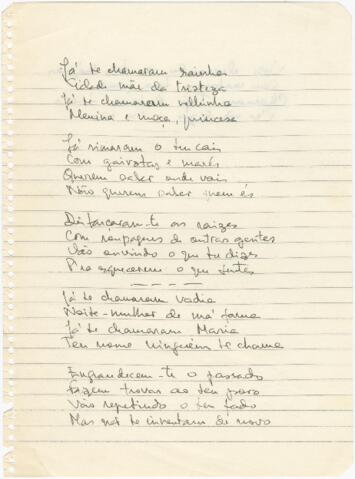 Já te chamaram rainha
Cidade mãe da tristeza
Já te chamaram velhinha
Menina e moça, princesa
Já rimaram o teu cais
Com gaivotas e marés
Querem saber onde vais
Não querem saber quem és
Disfarçaram-te as raizes
Com roupagens de outras gentes
Vão ouvindo o que tu dizes
P'ra esquecerem o que sentes
Já te chamaram vadia
Noite-mulher de má fama
Já te chamaram Maria
Teu nome ninguém te chama
Engrandecem-te o passado
Fazem trovas ao teu povo
Vão repetindo o teu fado
Mas não te inventam de novo